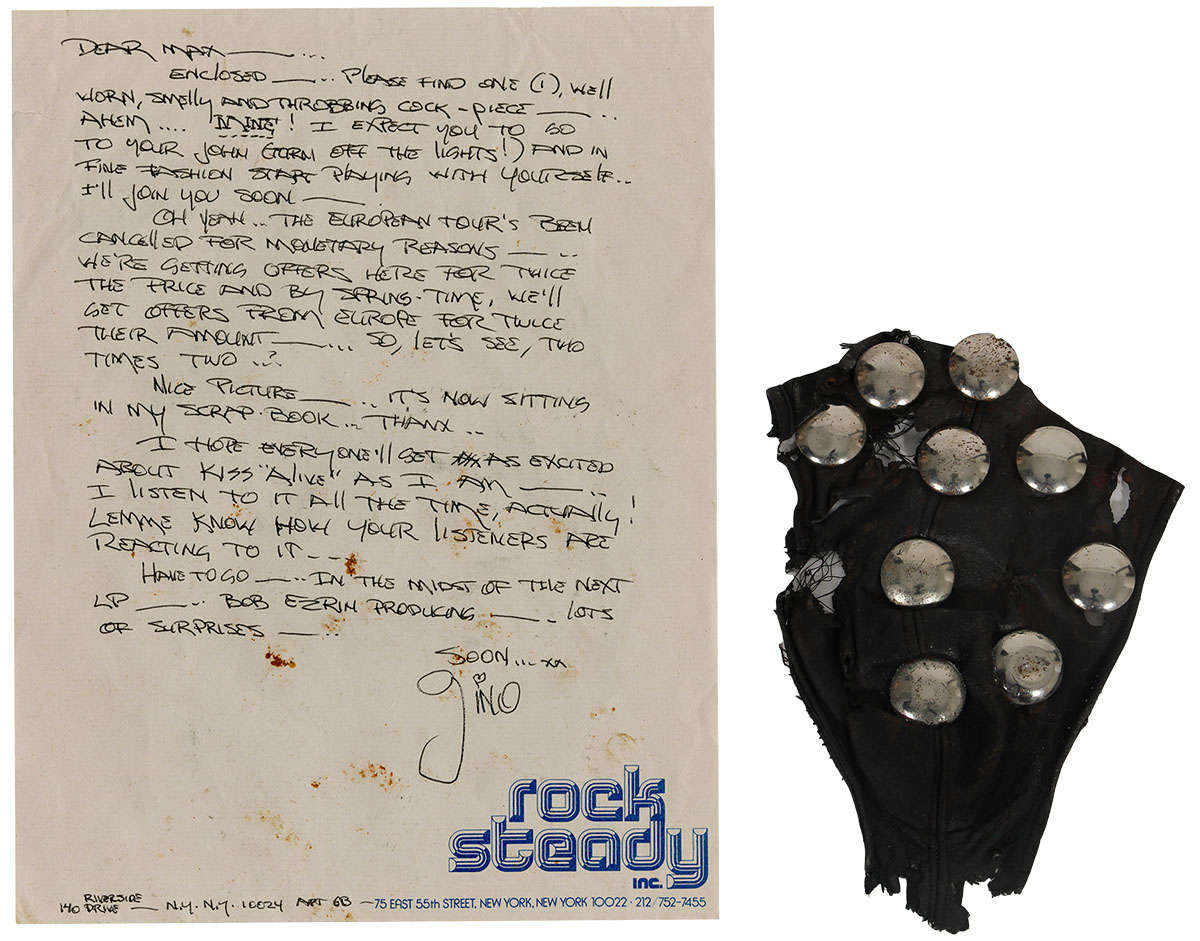 DEAR MAX ——...
ENCLOSED —.. PLEASE FIND ONE (1), WELL
WORN, SMELLY AND THROBBING COCK-PIECE —..
AHEM.... 'MINE'! I EXPECT YOU TO GO
TO YOUR JOHN (TURN OFF THE LIGHTS!) AND IN
FINE FASHION START PLAYING WITH YOURSELF..
I'LL JOIN YOU SOON ——.
OH YEAH... THE EUROPEAN TOUR'S BEEN
CANCELLED FOR MONETARY REASONS —..
WE'RE GETTING OFFERS HERE FOR TWICE
THE PRICE AND BY SPRING-TIME, WE'LL
GET OFFERS FROM EUROPE FOR TWICE
THEIR AMOUNT ——... SO, LET'S SEE, TWO
TIMES TWO ..?
NICE PICTURE ——.. IT'S NOW SITTING
IN MY SCRAP-BOOK... THANX..
I HOPE EVERYONE'LL GET AS EXCITED
ABOUT KISS "ALIVE" AS I AM ——..
I LISTEN TO IT ALL THE TIME, ACTUALLY!
LEMME KNOW HOW YOUR LISTENERS ARE
REACTING TO IT ---
HAVE TO GO ——.. IN THE MIDST OF THE NEXT
LP ——.. BOB EZRIN PRODUCING ——. LOTS
OF SURPRISES ——..
SOON...xx
gino
rock
steady
inc.
140 RIVERSIDE DRIVE — N.Y. N.Y. 10024 APT 6B — 75 EAST 55th STREET, NEW YORK, NEW YORK 10022 · 212/752-7455